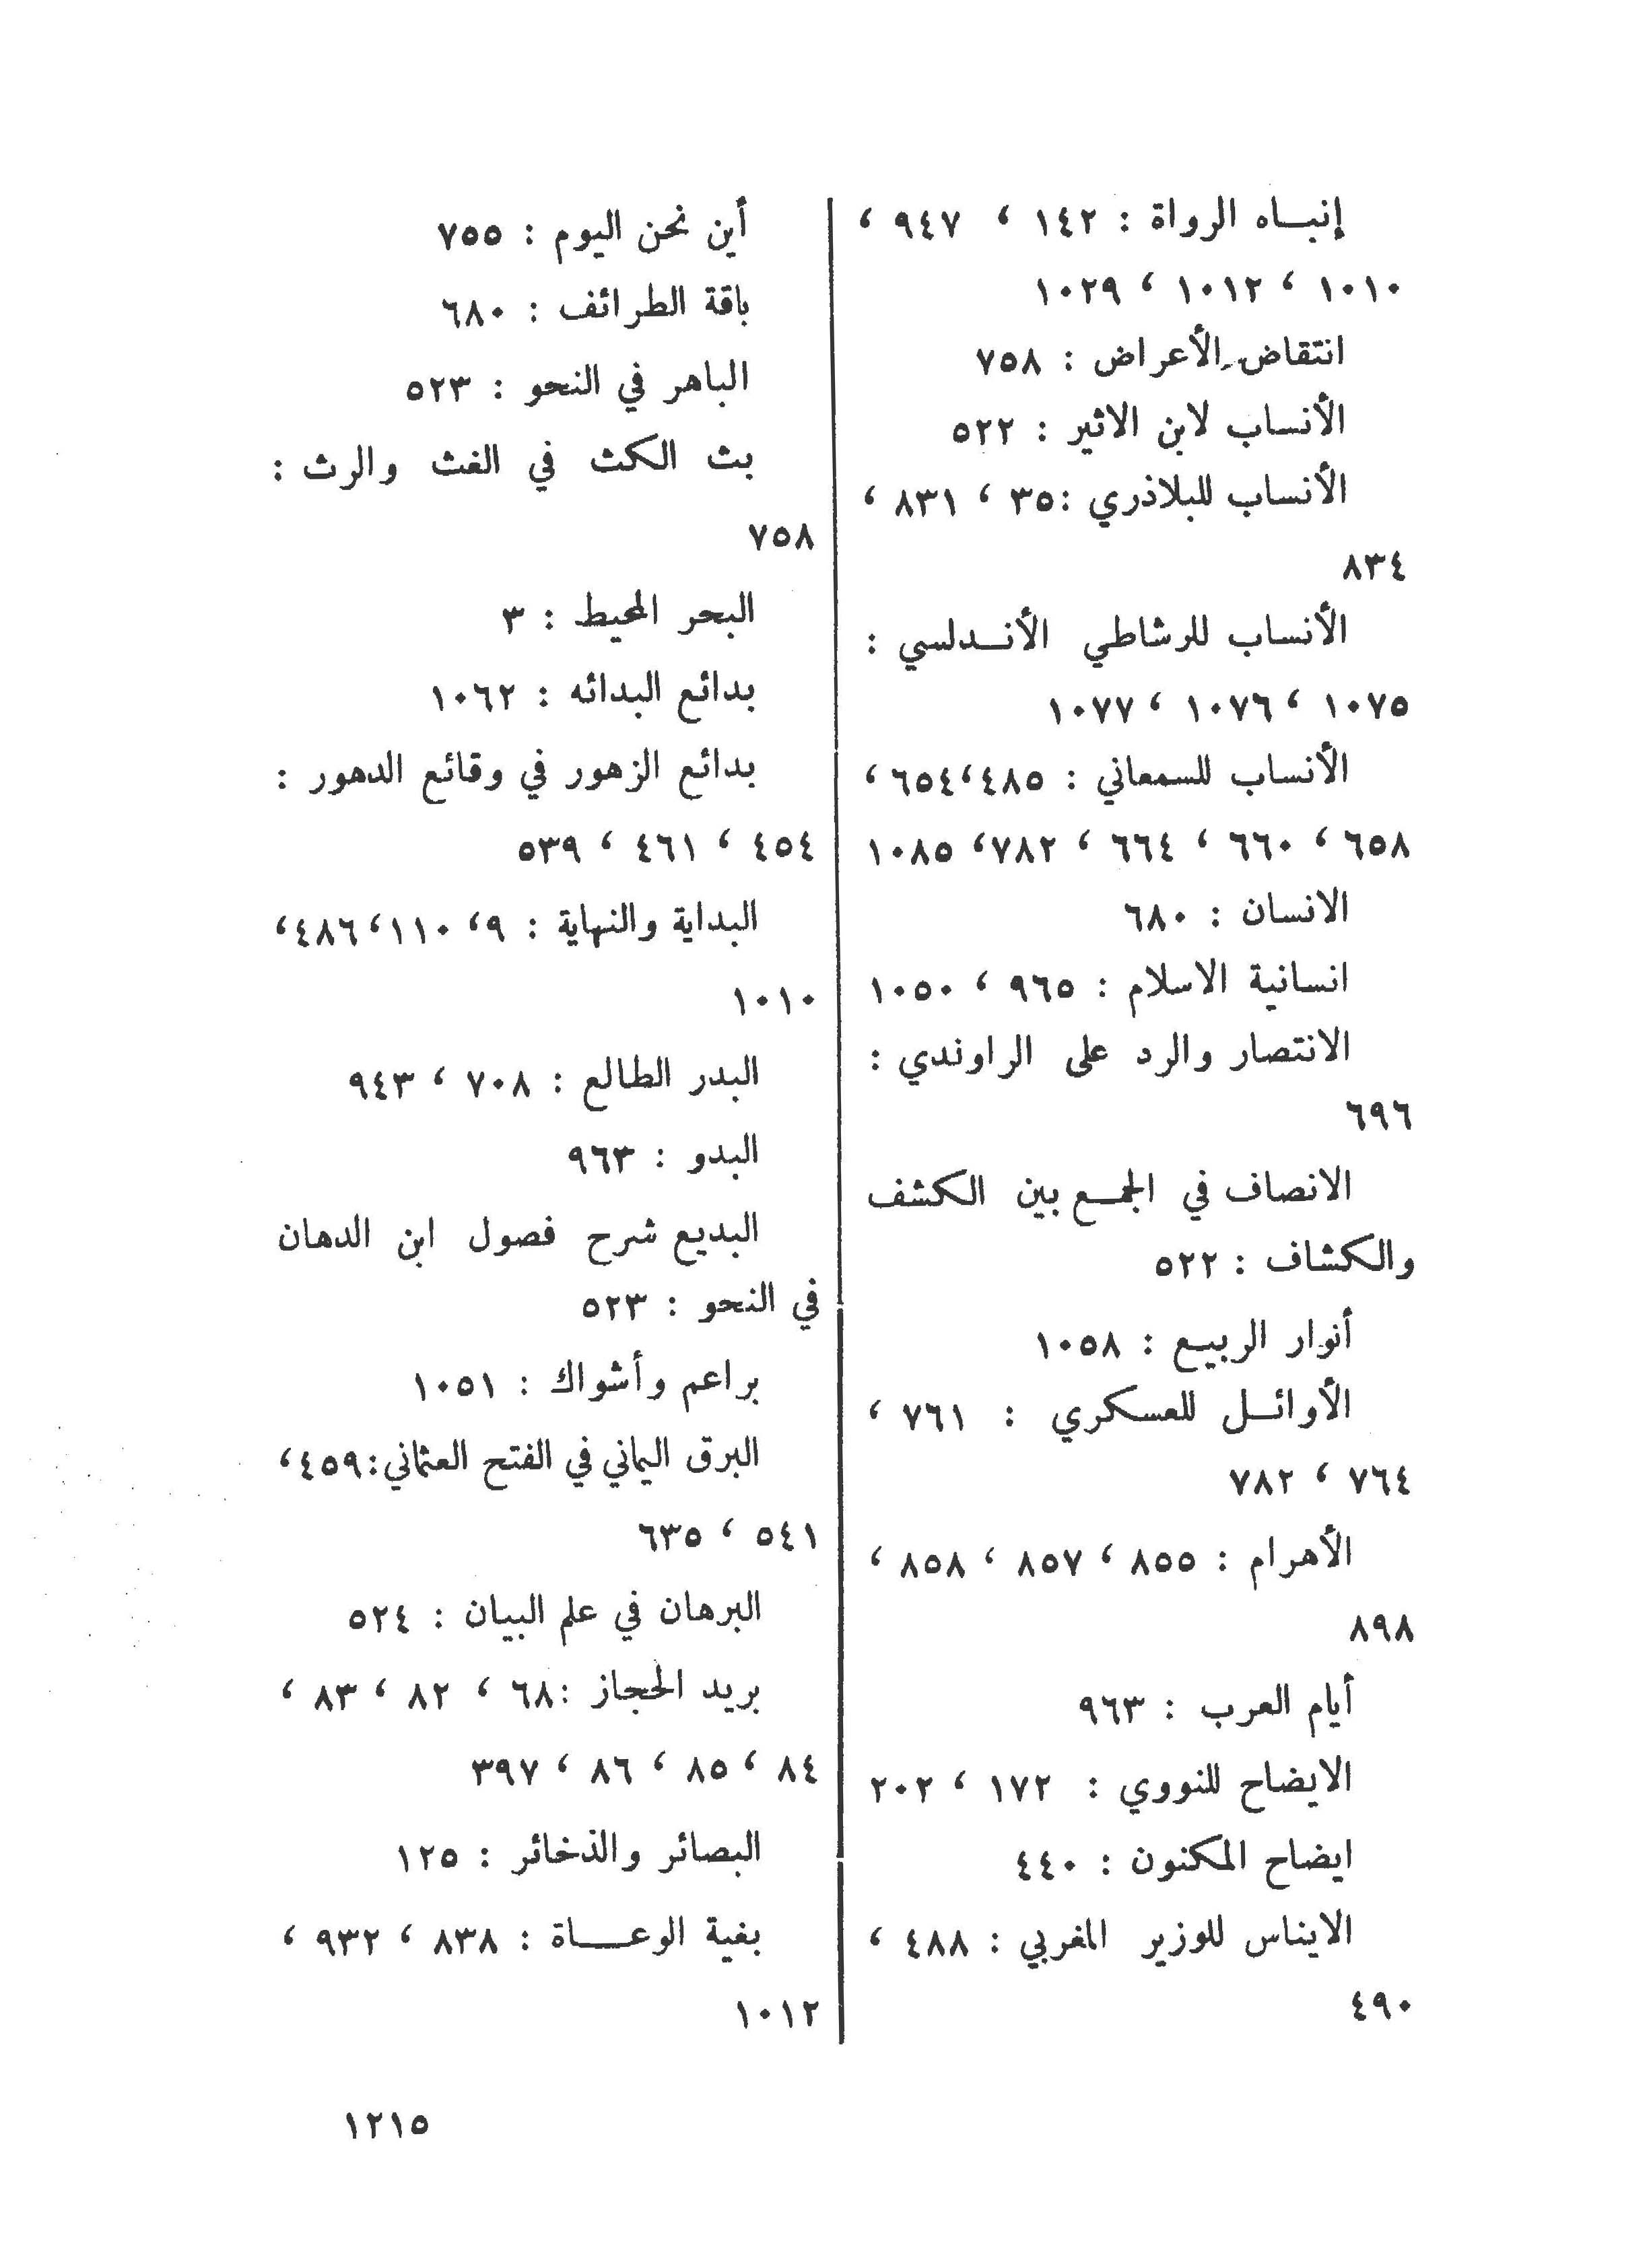 إنبـاه الرواة : ١٤٢ ، ٩٤٧ ،
١٠١٠ ، ١٠١٢ ، ١٠٢٩
انتقاض الأعراض : ٧٥٨
الأنساب لابن الاثير : ٥٢٢
الأنساب للبلاذري :٣٥ ، ٨٣١ ،
٨٣٤
الأنساب للرشاطي الأنـدلسي :
١٠٧٥ ، ١٠٧٦ ، ١٠٧٧
الأنساب للسمعاني : ٤٨٥،٦٥٤ ،
٦٥٨ ، ٦٦٠ ، ٦٦٤ ، ٧٨٢، ١٠٨٥
الانسان : ٦٨٠
انسانية الاسلام : ٩٦٥ ، ١٠٥٠
الانتصار والرد على الراوندي :
٦٩٦
الانصاف في الجمـع بين الكشف
والكشاف : ٥٢٢
أنوار الربيع : ١٠٥٨
الأوائـل للعسكري : ٧٦١ ،
٧٦٤ ، ٧٨٢
الأهرام : ٨٥٥ ، ٨٥٧ ، ٨٥٨ ،
٨٩٨
أيام العرب : ٩٦٣
الايضاح للنووي : ١٧٢ ، ٢٠٢
ايضاح المكنون : ٤٤٠
الايناس للوزير المغربي : ٤٨٨ ،
٤٩٠
أين نحن اليوم : ٧٥٥
باقة الطرائف : ٦٨٠
الباهر في النحو : ٥٢٣
بث الكث في الغث والرث :
٧٥٨
البحر المحيط : ٣
بدائع البدائه : ١٠٦٢
بدائع الزهور في وقائع الدهور :
٤٥٤ ، ٤٦١ ، ٥٣٩
البداية والنهاية : ٩، ١١٠،٤٨٦،
١٠١٠
البدر الطالع : ٧٠٨ ، ٩٤٣
البدو : ٩٦٣
البديع شرح فصول ابن الدهان
في النحو : ٥٢٣
براعم وأشواك : ١٠٥١
البرق اليماني في الفتح العثماني:٤٥٩،
٥٤١ ، ٦٣٥
البرهان في علم البيان : ٥٢٤
بريد الحجاز :٦٨ ، ٨٢ ، ٨٣ ،
٨٤ ، ٨٥ ، ٨٦ ، ٣٩٧
البصائر والذخائر : ١٢٥
بغية الوعـاة : ٨٣٨ ، ٩٣٢ ،
١٠١٢
١٢١٥